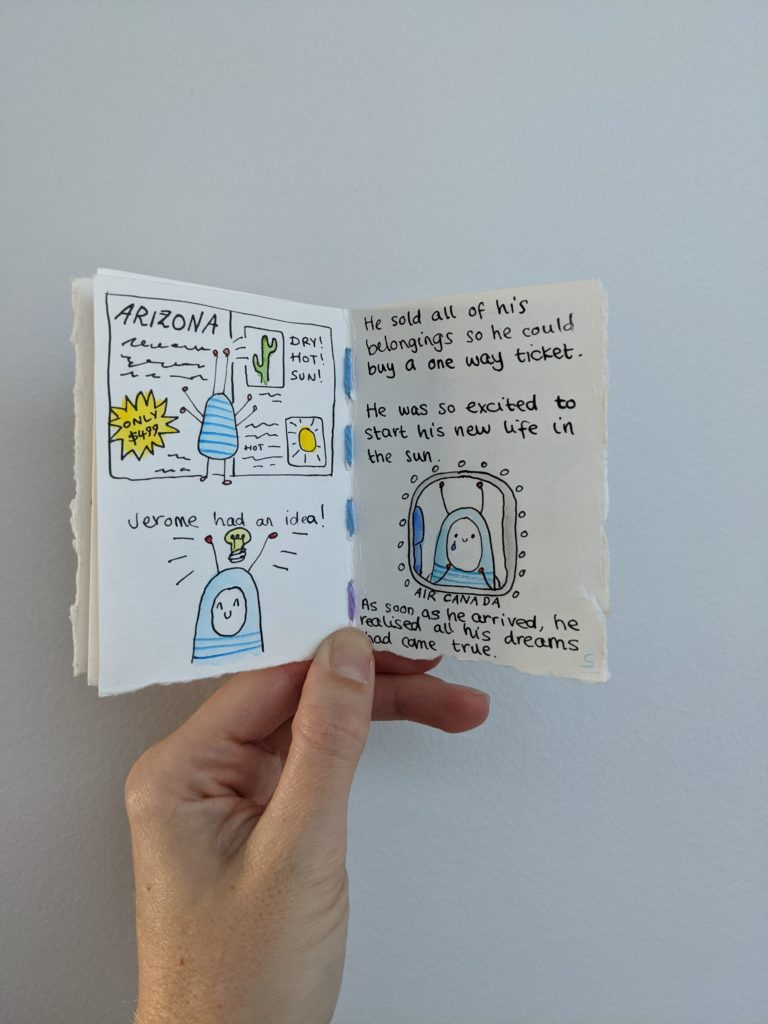 ARIZONA
DRY!
HOT!
SUN!
ONLY
$499
HOT
Jerome had an idea!
He sold all of his
belongings so he could
buy a one way ticket.
He was so excited to
start his new life in
the sun.
AIR CANADA
As soon as he arrived, he
realised all his dreams
had come true.
5